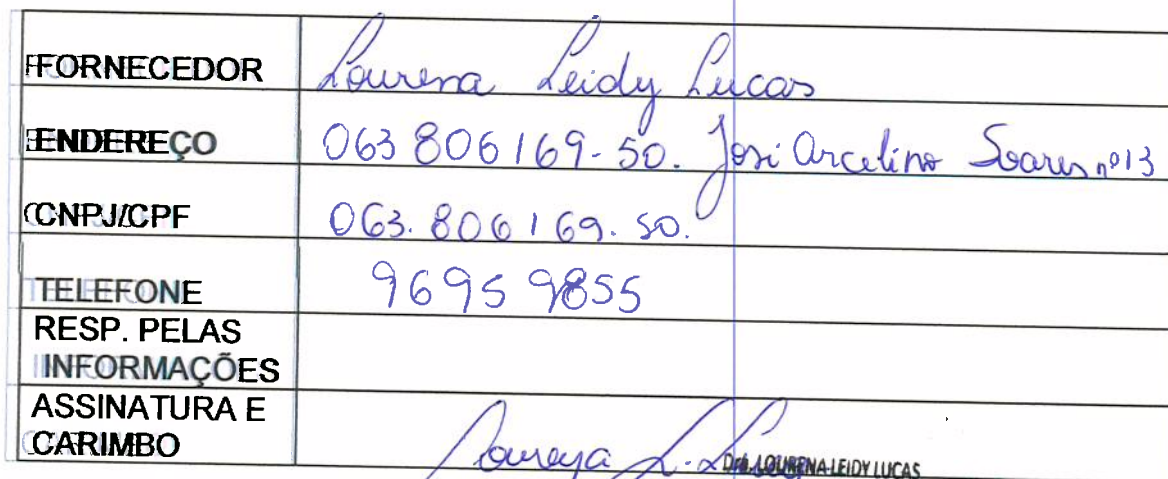 FORNECEDOR Lourena Leidy Lucas
ENDEREÇO 063 806 169-50. José Arcelino Soares nº13
CNPJ/CPF 063.806 169.50.
TELEFONE 9695 9855
RESP. PELAS
INFORMAÇÕES
ASSINATURA E
CARIMBO Lourena L. Lucas
LOURENA LEIDY LUCAS